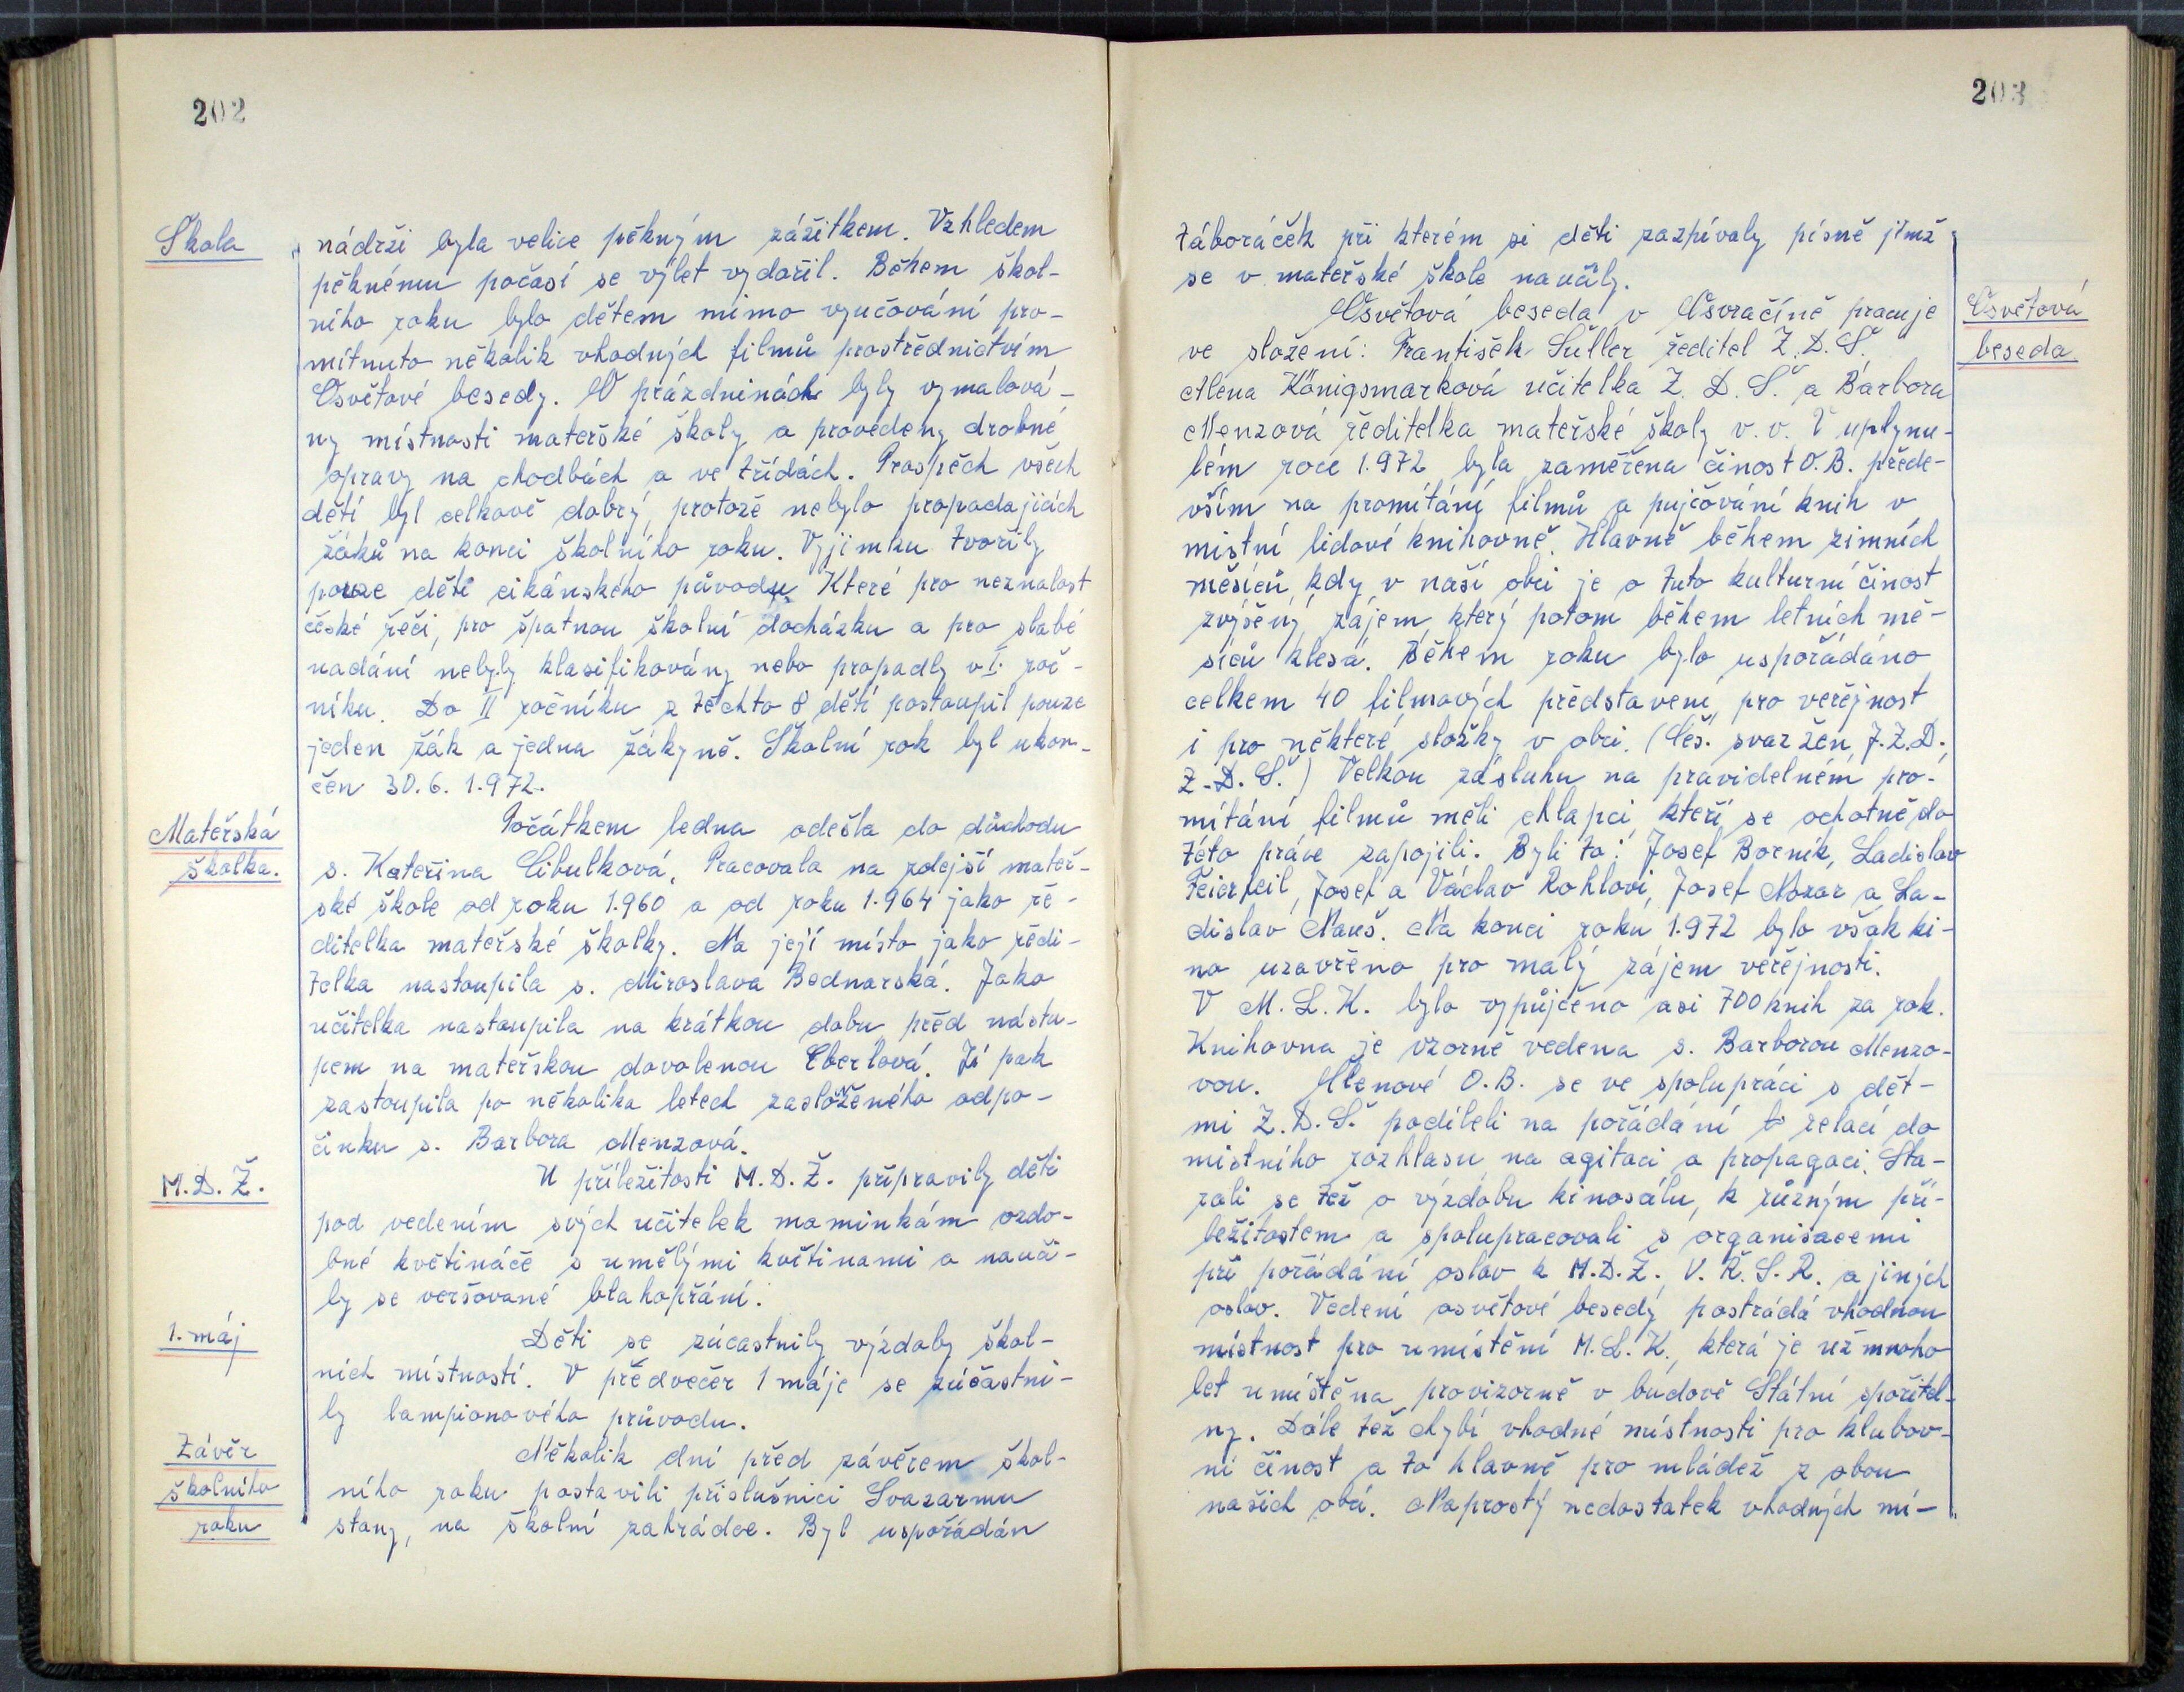 202
Škola
nádrži byla velice pěkným zážitkem. Vzhledem
pěknému počasí se výlet vydařil. Během škol-
ního roku bylo dětem mimo vyučování pro-
mítnuto několik vhodných filmů prostřednictvím
Osvětové besedy. O prázdninách byly vymalová-
ny místnosti mateřské školy a provedeny drobné
opravy na chodbách a ve třídách. Prospěch všech
dětí byl celkově dobrý, protože nebylo propadajících
žáků na konci školního roku. Vyjimku tvořily
pouze děti cikánského původu, Které pro neznalost
české řeči, pro špatnou školní docházku a pro slabé
nadání nebyly klasifikovány nebo propadly v I. roč-
níku. Do II ročníku z těchto 8 dětí postoupil pouze
jeden žák a jedna žákyně. Školní rok byl ukon-
čen 30.6. 1.972.
Mateřská
školka.
Počátkem ledna odešla do důchodu
s. Kateřina Cibulková, Pracovala na zdejší mateř-
ské škole od roku 1.960 a od roku 1.964 jako ře-
ditelka mateřské školky. Na její místo jako ředi-
telka nastoupila s. Miroslava Bednarská. Jako
učitelka nastoupila na krátkou dobu před nástu-
pem na mateřskou dovolenou Eberlová. Jí pak
zastoupila po několika letech zaslouženého odpo-
činku s. Barbora Menzová.
M.D.Ž.
U příležitosti M.D.Ž. připravily děti
pod vedením svých učitelek maminkám ozdo-
bné květináče s umělými květinami a nauči-
ly se veršované blahopřání.
1. máj
Děti se zúčastnily výzdoby škol-
ních místností. V předvečer 1 máje se zúčastni-
ly lampionového průvodu.
Závěr
školního
roku
Několik dní před závěrem škol-
ního roku postavili příslušníci Svazarmu
stany, na školní zahrádce. Byl uspořádán
203
táboráček při kterém si děti zazpívaly písně jimž
se v mateřské škole naučily.
Osvětová
beseda
Osvětová beseda v Osvračíně pracuje
ve složení: František Šuller ředitel Z.D.Š.
Alena Königsmarková učitelka Z. D. Š. a Barbora
Menzová ředitelka mateřské školy v.v. V uplynu-
lém roce 1.972 byla zaměřena činost O.B. přede-
vším na promítání filmů a pujčování knih v
místní lidové knihovně. Hlavně během zimních
měsíců, kdy v naší obci je o tuto kulturní činost
zvýšený zájem, který potom během letních mě-
síců klesá. Během roku bylo uspořádáno
celkem 40 filmových představení, pro veřejnost
i pro některé složky v obci. (Čes. svaz žen, J.Z.D.,
Z.D.Š.) Velkou zásluhu na pravidelném pro-
mítání filmů měli chlapci, kteří se ochotně do
této práce zapojili. Byli to: Josef Bocník, Ladislav
Feierfeil, Josef a Václav Rohlovi, Josef Mozar a La-
dislav Nauš. Na konci roku 1.972 bylo však ki-
no uzavřeno pro malý zájem veřejnosti.
V M. L. K. bylo vypůjčeno asi 700 knih za rok.
Knihovna je vzorně vedena s. Barborou Menzo-
vou. Členové O.B. se ve spolupráci s dět-
mi Z.D.Š. podíleli na pořádání relací do
místního rozhlasu, na agitaci a propagaci. Sta-
rali se též o výzdobu kinosálu, k různým pří-
ležitostem a spolupracovali s organisacemi
při pořádání oslav k M.D.Ž., V.Ř.S.R. a jiných
oslav. Vedení osvětové besedy postrádá vhodnou
místnost pro umístění M.L.K., která je už mnoho
let umístěna provizorně v budově Státní spořitel-
ny. Dále též chybí vhodné místnosti pro klubov-
ní činost a to hlavně pro mládež z obou
našich obcí. Naprostý nedostatek vhodných mí-